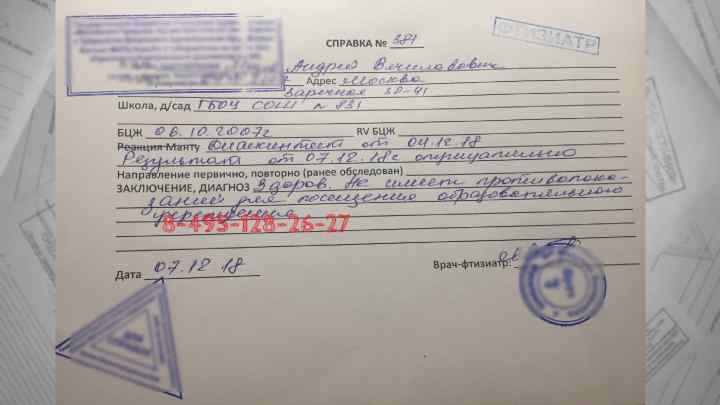 СПРАВКА № 381
ФТИЗИАТР
Андрей Вячеславович
Адрес Москва
Заречная
Школа, д/сад ГБОУ СОШ № 831
БЦЖ 06.10.2007г RV БЦЖ
Реакция Манту Диаскинтест от 04.12.18
Результат от 07.12.18г отрицательно
Направление первично, повторно (ранее обследован)
ЗАКЛЮЧЕНИЕ, ДИАГНОЗ Здоров. Не имеет противопока-
заний для посещения образовательного
учреждения
8-495-128-26-27
Дата 07.12 18
Врач-фтизиатр: